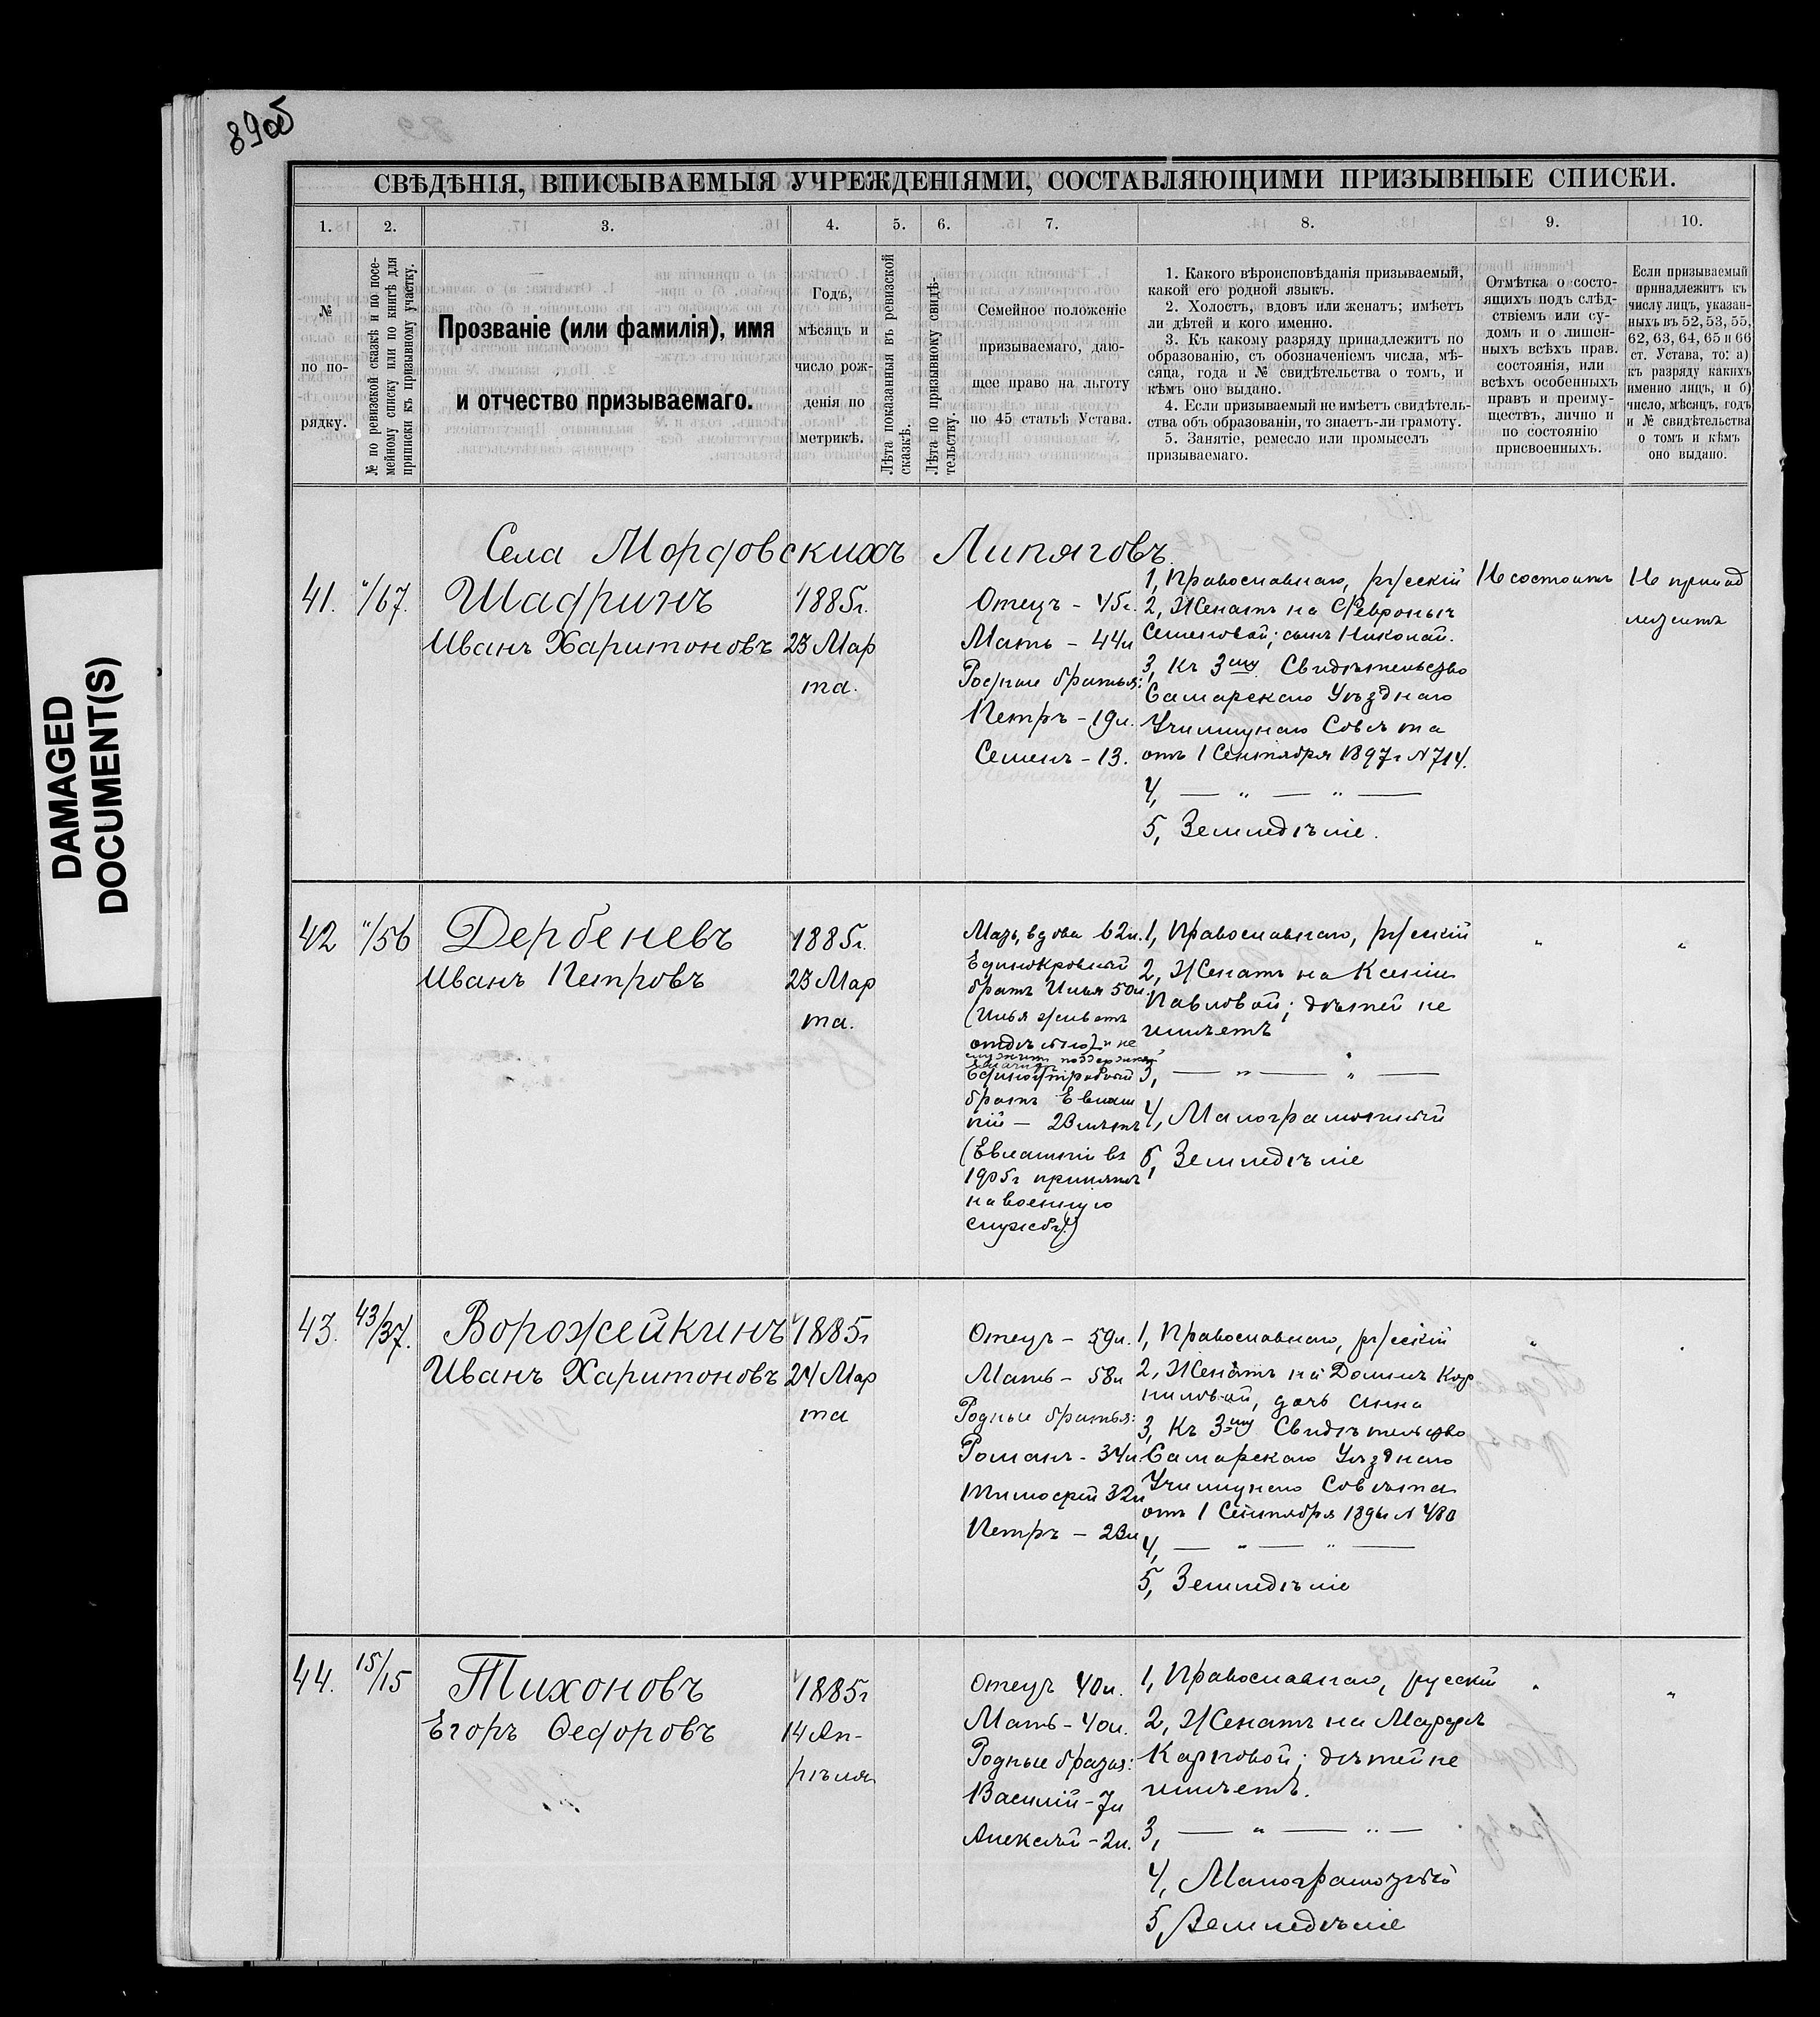 89об
DAMAGED
DOCUMENT(S)
СВѢДѢНІЯ, ВПИСЫВАЕМЫЯ УЧРЕЖДЕНІЯМИ, СОСТАВЛЯЮЩИМИ ПРИЗЫВНЫЕ СПИСКИ.
1. 2. 3. 4. 5. 6. 7. 8. 9. 10.
№
по по-
рядку.
№ по ревизской сказкѣ и по посе-
мейному списку или по книгѣ для
приписки къ призывному участку.
Прозваніе (или фамилія), имя
и отчество призываемаго.
Годъ,
мѣсяцъ и
число рож-
денія по
метрикѣ.
Лѣта показанныя въ ревизской
сказкѣ.
Лѣта по призывному свидѣ-
тельству.
Семейное положеніе
призываемаго, даю-
щее право на льготу
по 45 статьѣ Устава.
1. Какого вѣроисповѣданія призываемый,
какой его родной языкъ.
2. Холостъ, вдовъ или женатъ; имѣетъ
ли дѣтей и кого именно.
3. Къ какому разряду принадлежитъ по
образованію, съ обозначеніемъ числа, мѣ-
сяца, года и № свидѣтельства о томъ, и
кѣмъ оно выдано.
4. Если призываемый не имѣетъ свидѣтель-
ства объ образованіи, то знаетъ-ли грамоту.
5. Занятіе, ремесло или промыселъ
призываемаго.
Отмѣтка о состо-
ящихъ подъ слѣд-
ствіемъ или су-
домъ и о лишен-
ныхъ всѣхъ прав.
состоянія, или
всѣхъ особенныхъ
правъ и преиму-
ществъ, лично и
по состоянію
присвоенныхъ.
Если призываемый
принадлежитъ къ
числу лицъ, указан-
ныхъ въ 52, 53, 55,
62, 63, 64, 65 и 66
ст. Устава, то: а)
къ разряду какихъ
именно лицъ, и б)
число, мѣсяцъ, годъ
и № свидѣтельства
о томъ и кѣмъ
оно выдано.
Села Мордовскихъ Липяговъ
41. "/67.
Шадринъ
Иванъ Харитоновъ
1885г.
23 Мар
та.
Отецъ - 45л.
Мать - 44л
Родные братья:
Петръ - 19л.
Семенъ - 13.
1, Православнаго, русскій
2, Женатъ на Февроньи
Семеновой; сынъ Николай.
3, Къ 3му Свидѣтельство
Самарскаго Уѣзднаго
Училищнаго Совѣта
отъ 1 Сентября 1897г N 714.
4, — " — " —
5, Земледѣліе.
Не состоитъ
Не принад
лежитъ
42 "/56
Дербеневъ
Иванъ Петровъ
1885г.
23 Мар
та.
Мать, вдова 62л.
Единокровный
братъ Илья 50л.
(Илья живетъ
отдѣльно и не
служитъ поддержкой
Единоутробный
братъ Евлам
пій — 23 лѣтъ
(Евлампій въ
1905г принятъ
на военную
службу)
1, Православнаго, русскій
2, Женатъ на Ксеніи
Павловой; дѣтей не
имѣетъ
3, — " — " —
4, Малограмотный
5, Земледѣліе
" "
43. 43/37.
Ворожейкинъ
Иванъ Харитоновъ
1885г
24 Мар
та
Отецъ - 59л.
Мать - 58л
Родные братья:
Романъ - 34л
Тимофей 32л
Петръ - 23л
1, Православнаго, русскій
2, Женатъ на Домнѣ Кор
ниловой, дочь Анна
3, Къ 3му Свидѣтельство
Самарскаго Уѣзднаго
Училищнаго Совѣта
отъ 1 Сентября N 480
4, — " — " —
5, Земледѣліе
"
44. 15/15
Тихоновъ
Егоръ Ѳедоровъ
1885г
14 Ап-
рѣля
Отецъ 40л.
Мать - 40л.
Родные братья:
Василій - 7л
Алексѣй - 2л.
1, Православнаго, русскій
2, Женатъ на Марфѣ
Карповой; дѣтей не
имѣетъ.
3, — " — " —
4, Малограмотный
5, Земледѣліе
" "